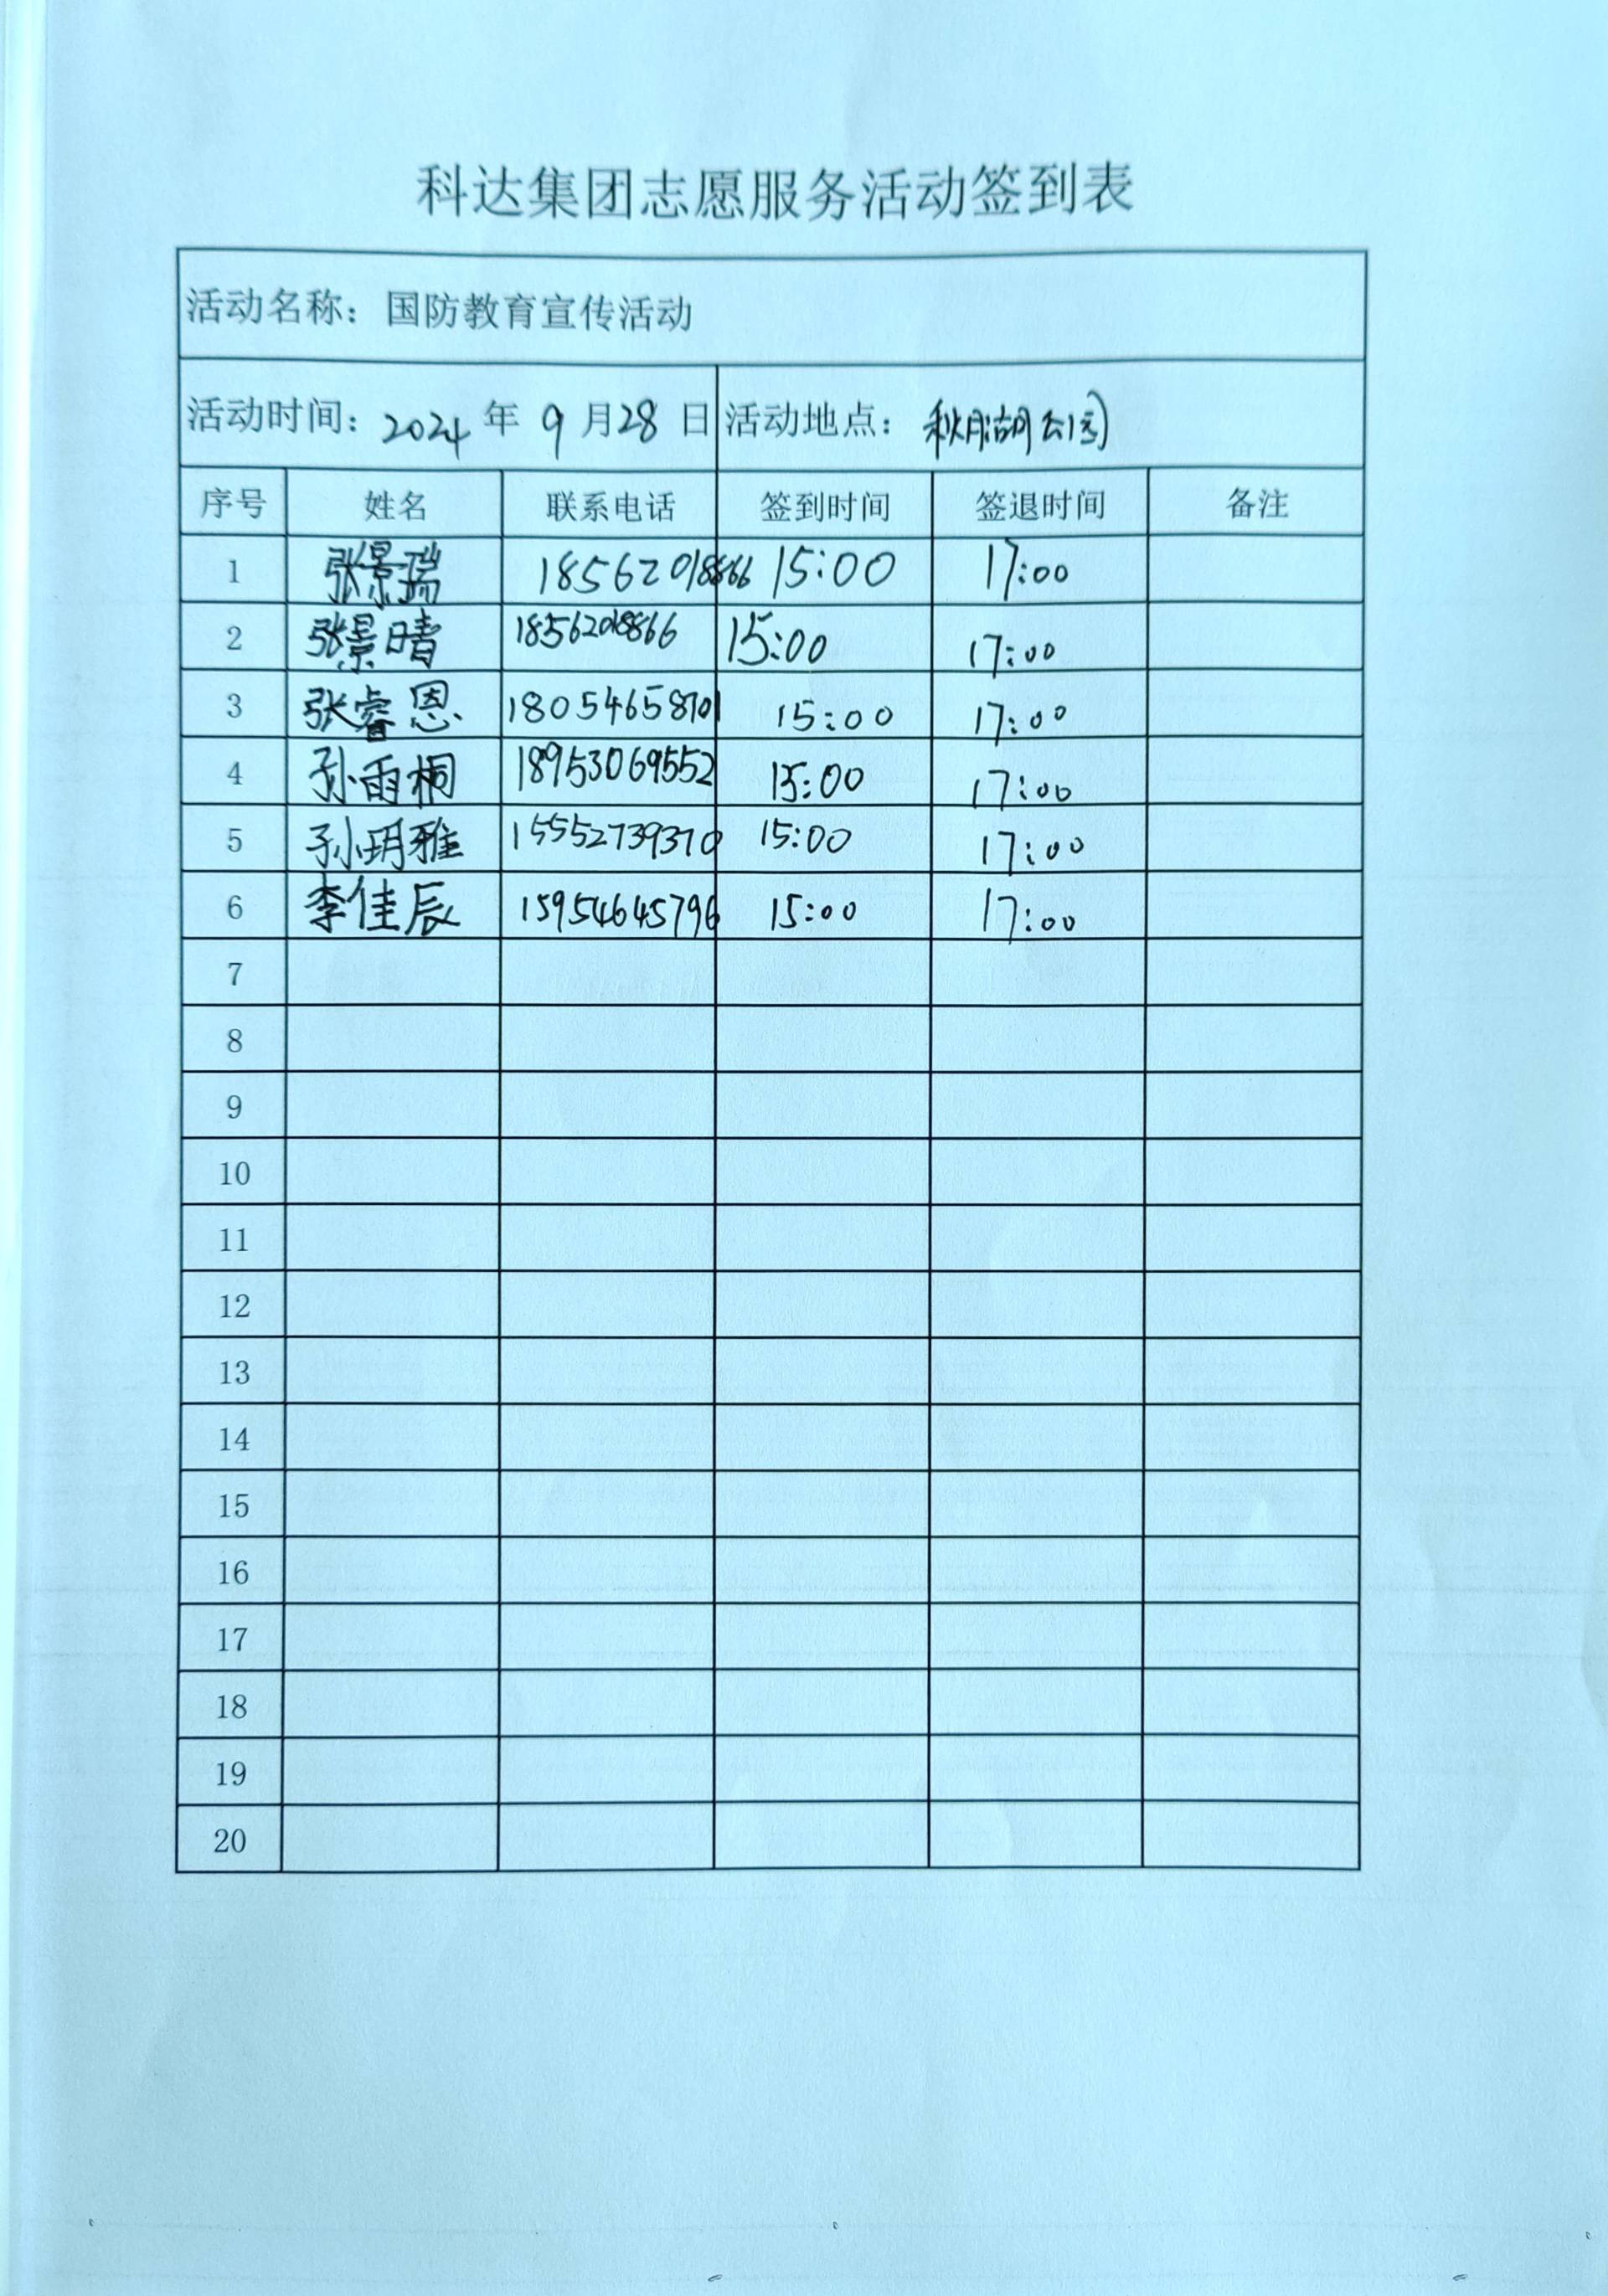 科达集团志愿服务活动签到表
活动名称：国防教育宣传活动
活动时间：2024 年 9 月 28 日 活动地点：秋月湖公园
序号 姓名 联系电话 签到时间 签退时间 备注
1 张景瑞 18562018866 15:00 17:00
2 张景晴 18562018866 15:00 17:00
3 张睿恩 18054658701 15:00 17:00
4 孙雨桐 18953069552 15:00 17:00
5 孙玥雅 15552739370 15:00 17:00
6 李佳辰 15954645796 15:00 17:00
7
8
9
10
11
12
13
14
15
16
17
18
19
20